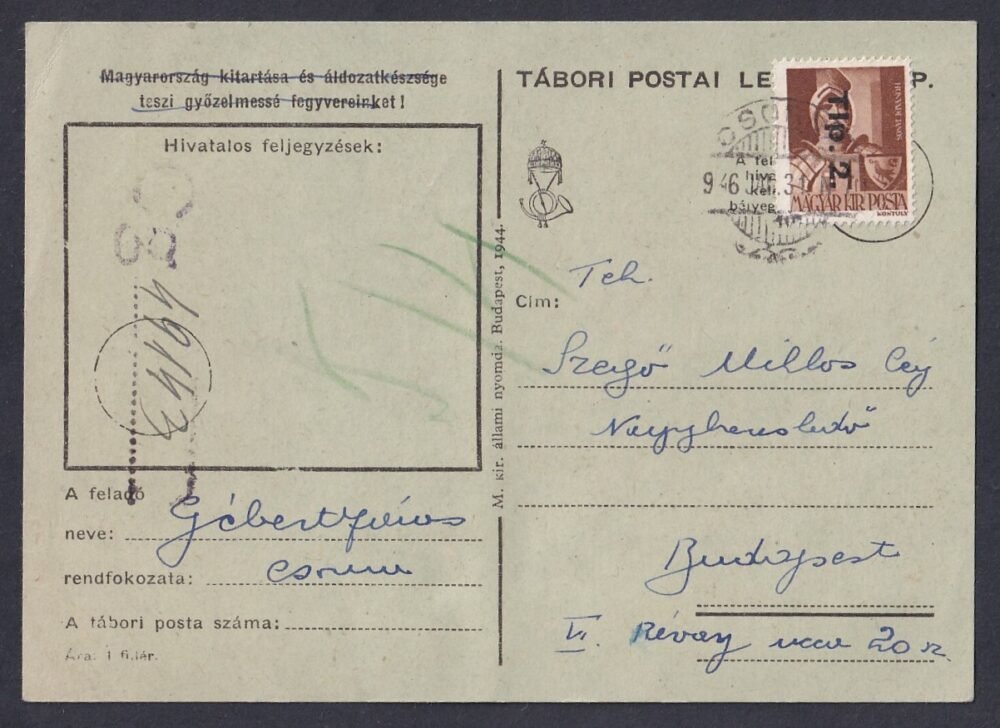 Magyarország kitartása és áldozatkészsége
teszi győzelmessé fegyvereinket!
Hivatalos feljegyzések:
A feladó
neve: Gébert János
rendfokozata: Csorna
A tábori posta száma:
Ára: 1 fillér.
M. kir. állami nyomda. Budapest, 1944.
TÁBORI POSTAI
HUNYADI JÁNOS
Tlp. 2.
MAGYAR KIR. POSTA
KONTULY
946 31
A
bélyeg
Tek.
Cím:
Szegő Miklós Cég
Nagykereskedő
Budapest
VI. Révay ucca 20 sz.